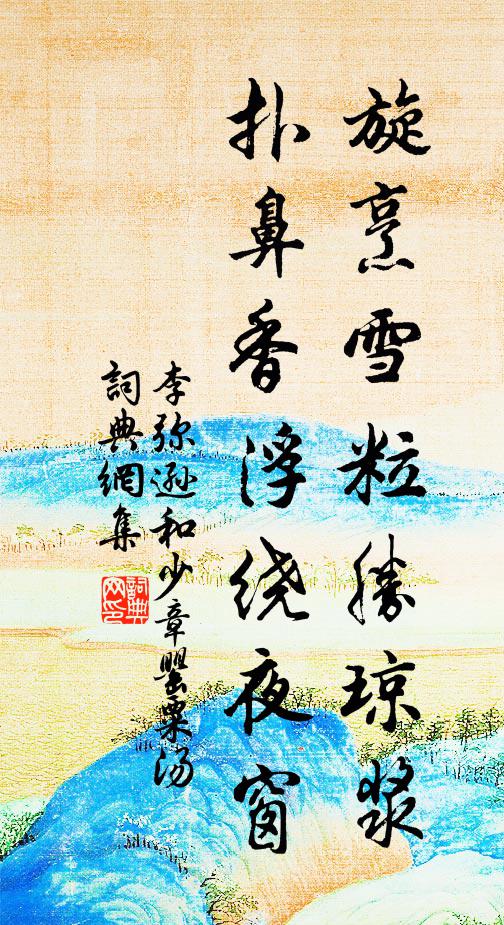 旋烹雪粒勝琼浆
扑鼻香浮绕夜窗
李弥逊和少章罂粟汤
詞典網集
詞典网印